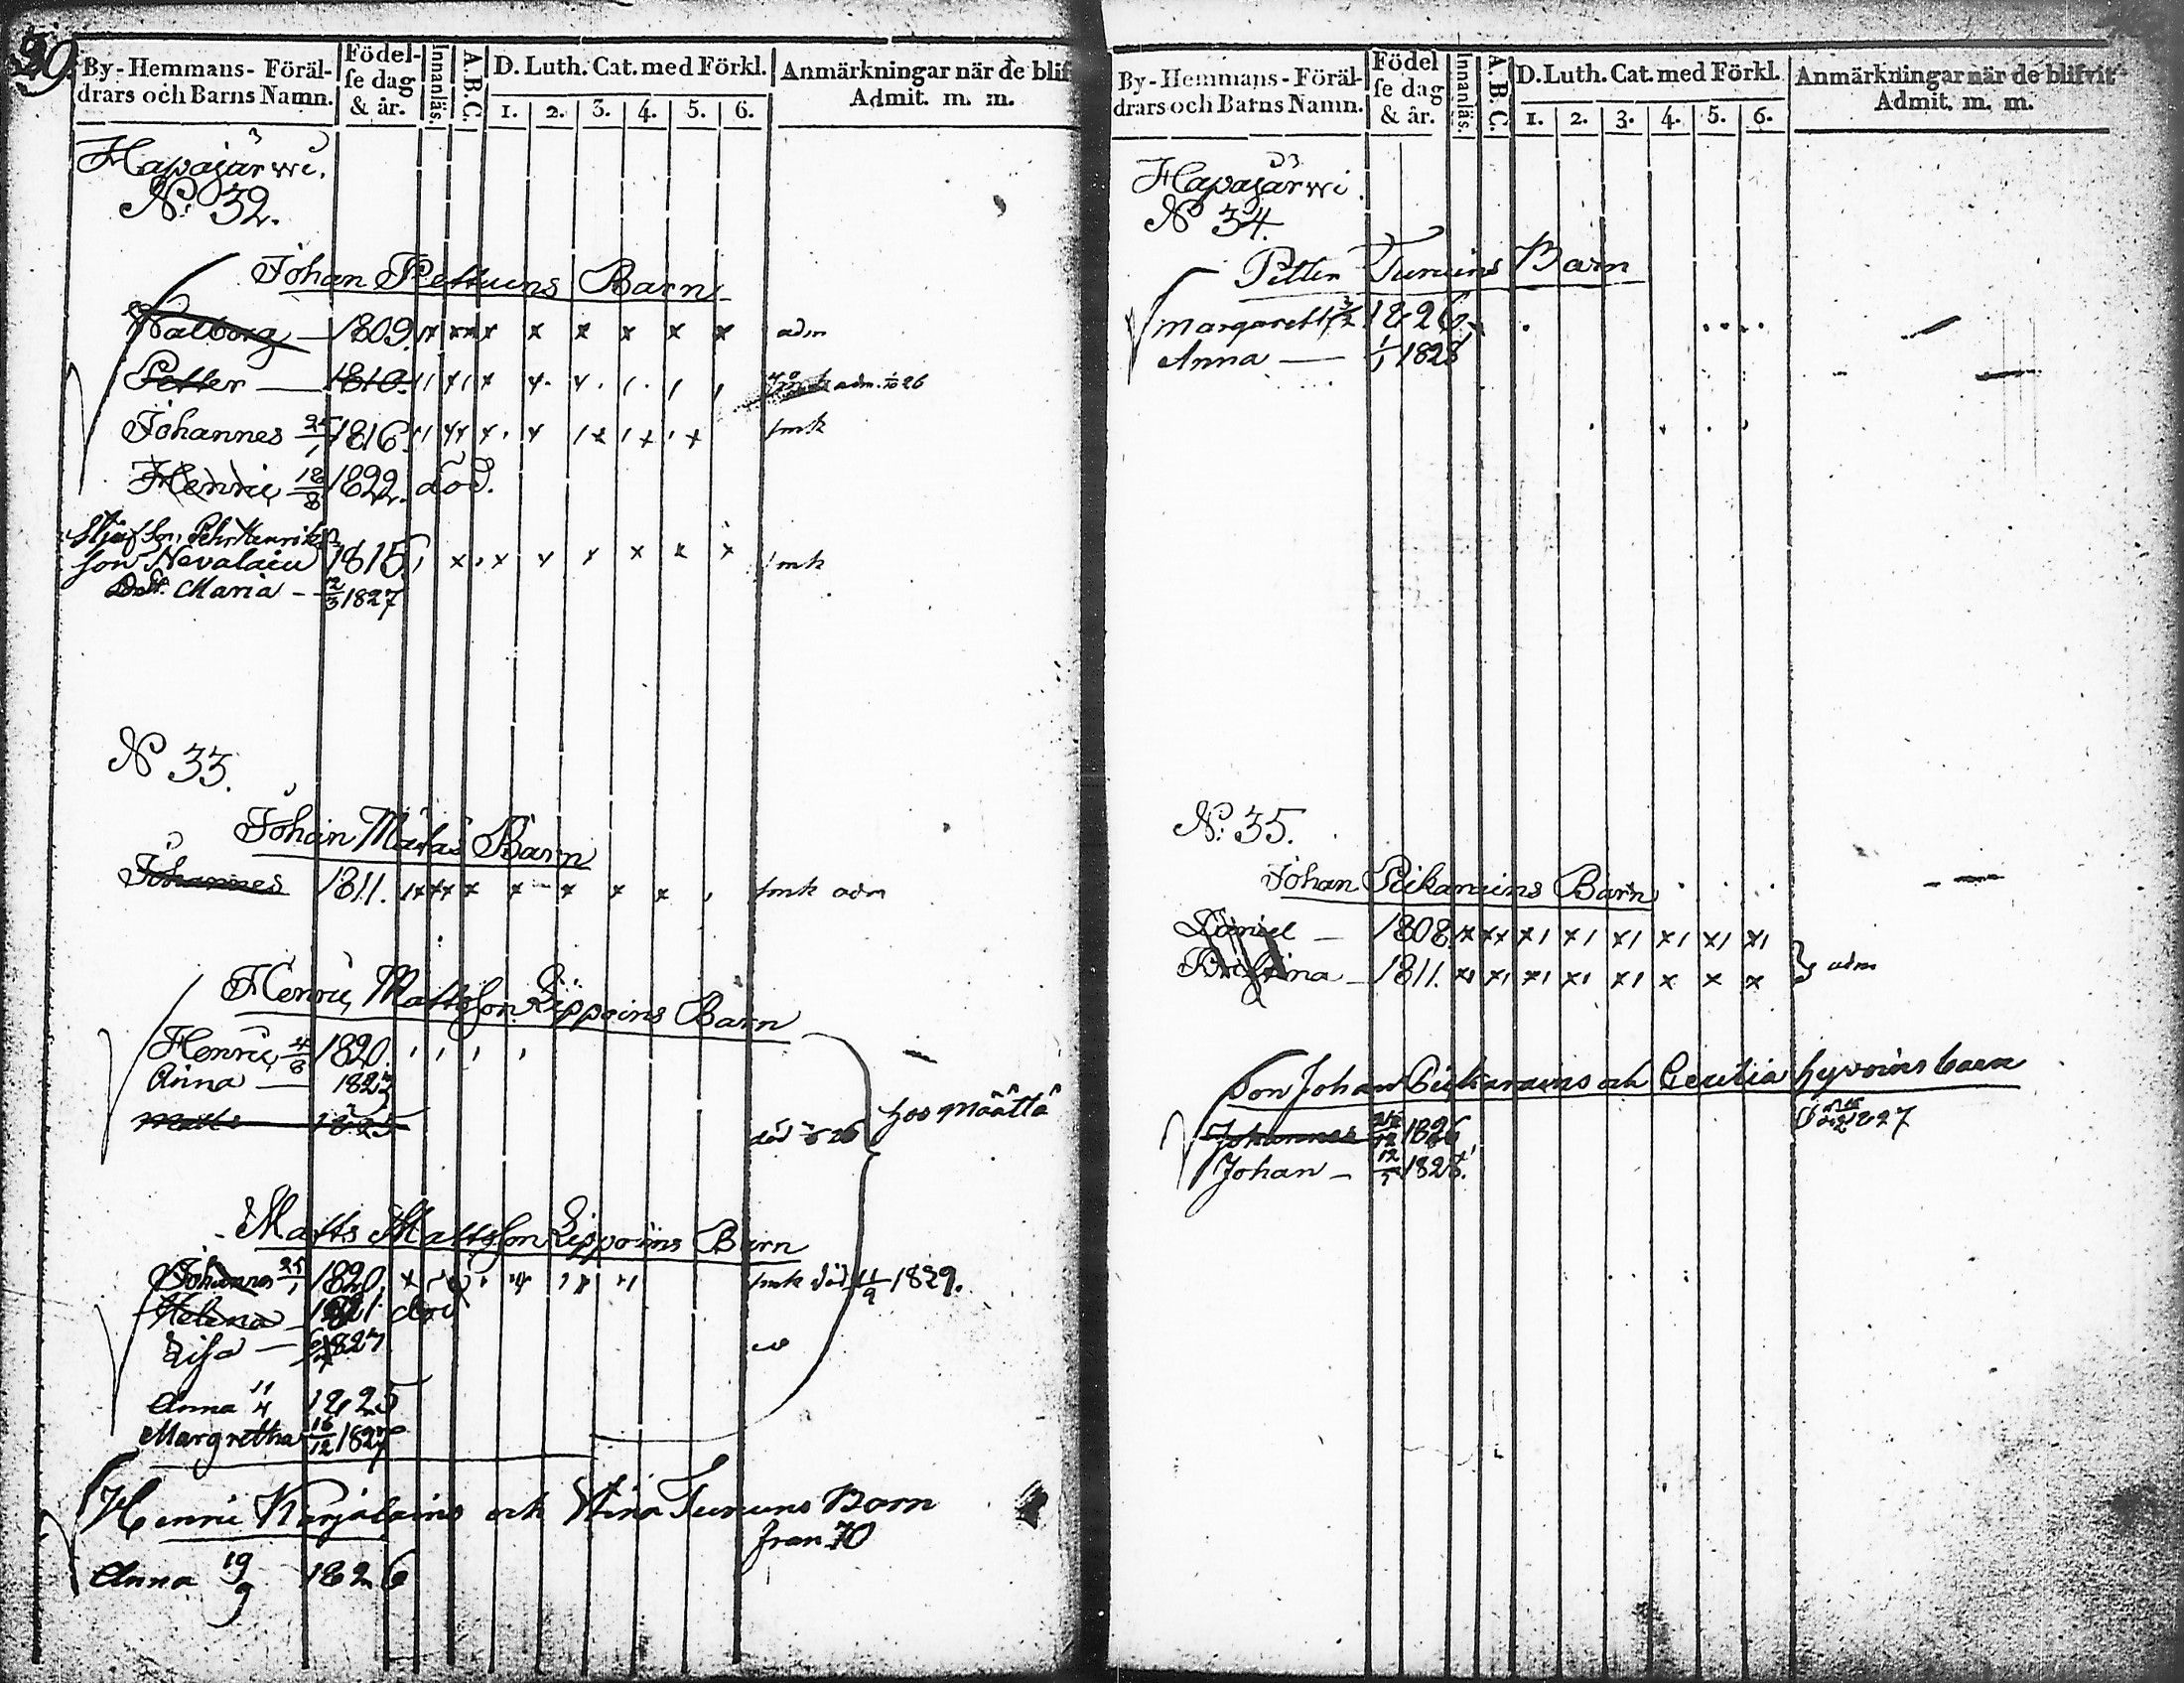 29.
By-Hemmans-Föräl-
drars och Barns Namn.
Födel-
se dag
& år.
Innanläs.
A.B.C.
D. Luth. Cat. med Förkl.
1. 2. 3. 4. 5. 6.
Anmärkningar när de blif
Admit. m. m.
Hapajärwi.
N: 32.
Johan Pettuins Barn
Walborg — 1809. adm
Petter — 1810. adm. 26
Johannes 25/1 1816. smk
Henric 18/8 1822. död.
Styf Son, Pehr Henriks
son Nevalain 1815 smk
Dott. Maria - 12/3 1827
N 33.
Johan Mätäs Barn
Johannes 1811. smk adm
Henric Mattsson Lippoins Barn
Henric 4/8 1820.
Anna — 1823
Matts 1825 död 26
hos Määttä
Matts Mattsson Lippoins Barn
Johannes 25/1 1820. smk död 11/9 1829.
Helena 1821 död
Lisa — 1827
Anna 11/4 1825
Margretha 16/12 1827
Henric Karjalains och Stina Turuns Barn
från 70
Anna 19/9 1826
By-Hemmans-Föräl-
drars och Barns Namn.
Födel
se dag
& år.
Innanläs.
A. B. C.
D. Luth. Cat. med Förkl.
1. 2. 3. 4. 5. 6.
Anmärkningar när de blifvit
Admit. m. m.
Hapajärwi.
N 34.
Petter Turuins Barn
Margareth 1826.
Anna — 1/1 1828
N: 35.
Johan Pikarains Barn
Daniel — 1808.
Kristina — 1811. } adm
Son Johan Pikarains och Cecilia Hyvöins barn
Johannes 1826 1827
Johan — 12/5 1828.